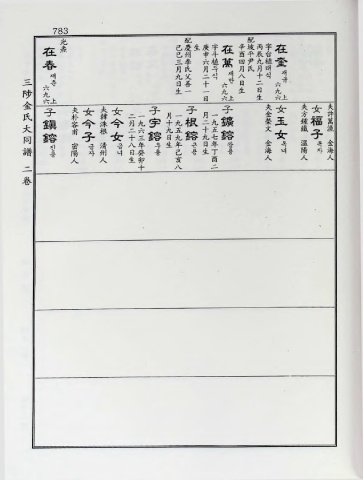 783
在奎 재규 六九六上
字台植 태식
丙戌九月十二日生
配坡平尹氏
辛酉四月八日生
在萬 재만 六九六上
字斗植 두식
庚申六月二十一日生
配慶州李氏父善一
己巳三月九日生
光春
在春 재춘 六九六上
夫許萬源 金海人
女福子 복자
夫方鍾鐵 溫陽人
女玉女 옥녀
夫金榮文 金海人
子鑛鎔 광용
一九五七年丁酉二月二十九日生
子根鎔 근용
一九五九年己亥八月十九日生
子宇鎔 우용
一九六三年癸卯十二月二十八日生
女今女 금녀
夫韓洙根 清州人
女今子 금자
夫朴容甫 密陽人
子鎭鎔 진용
三陟金氏大同譜 二卷